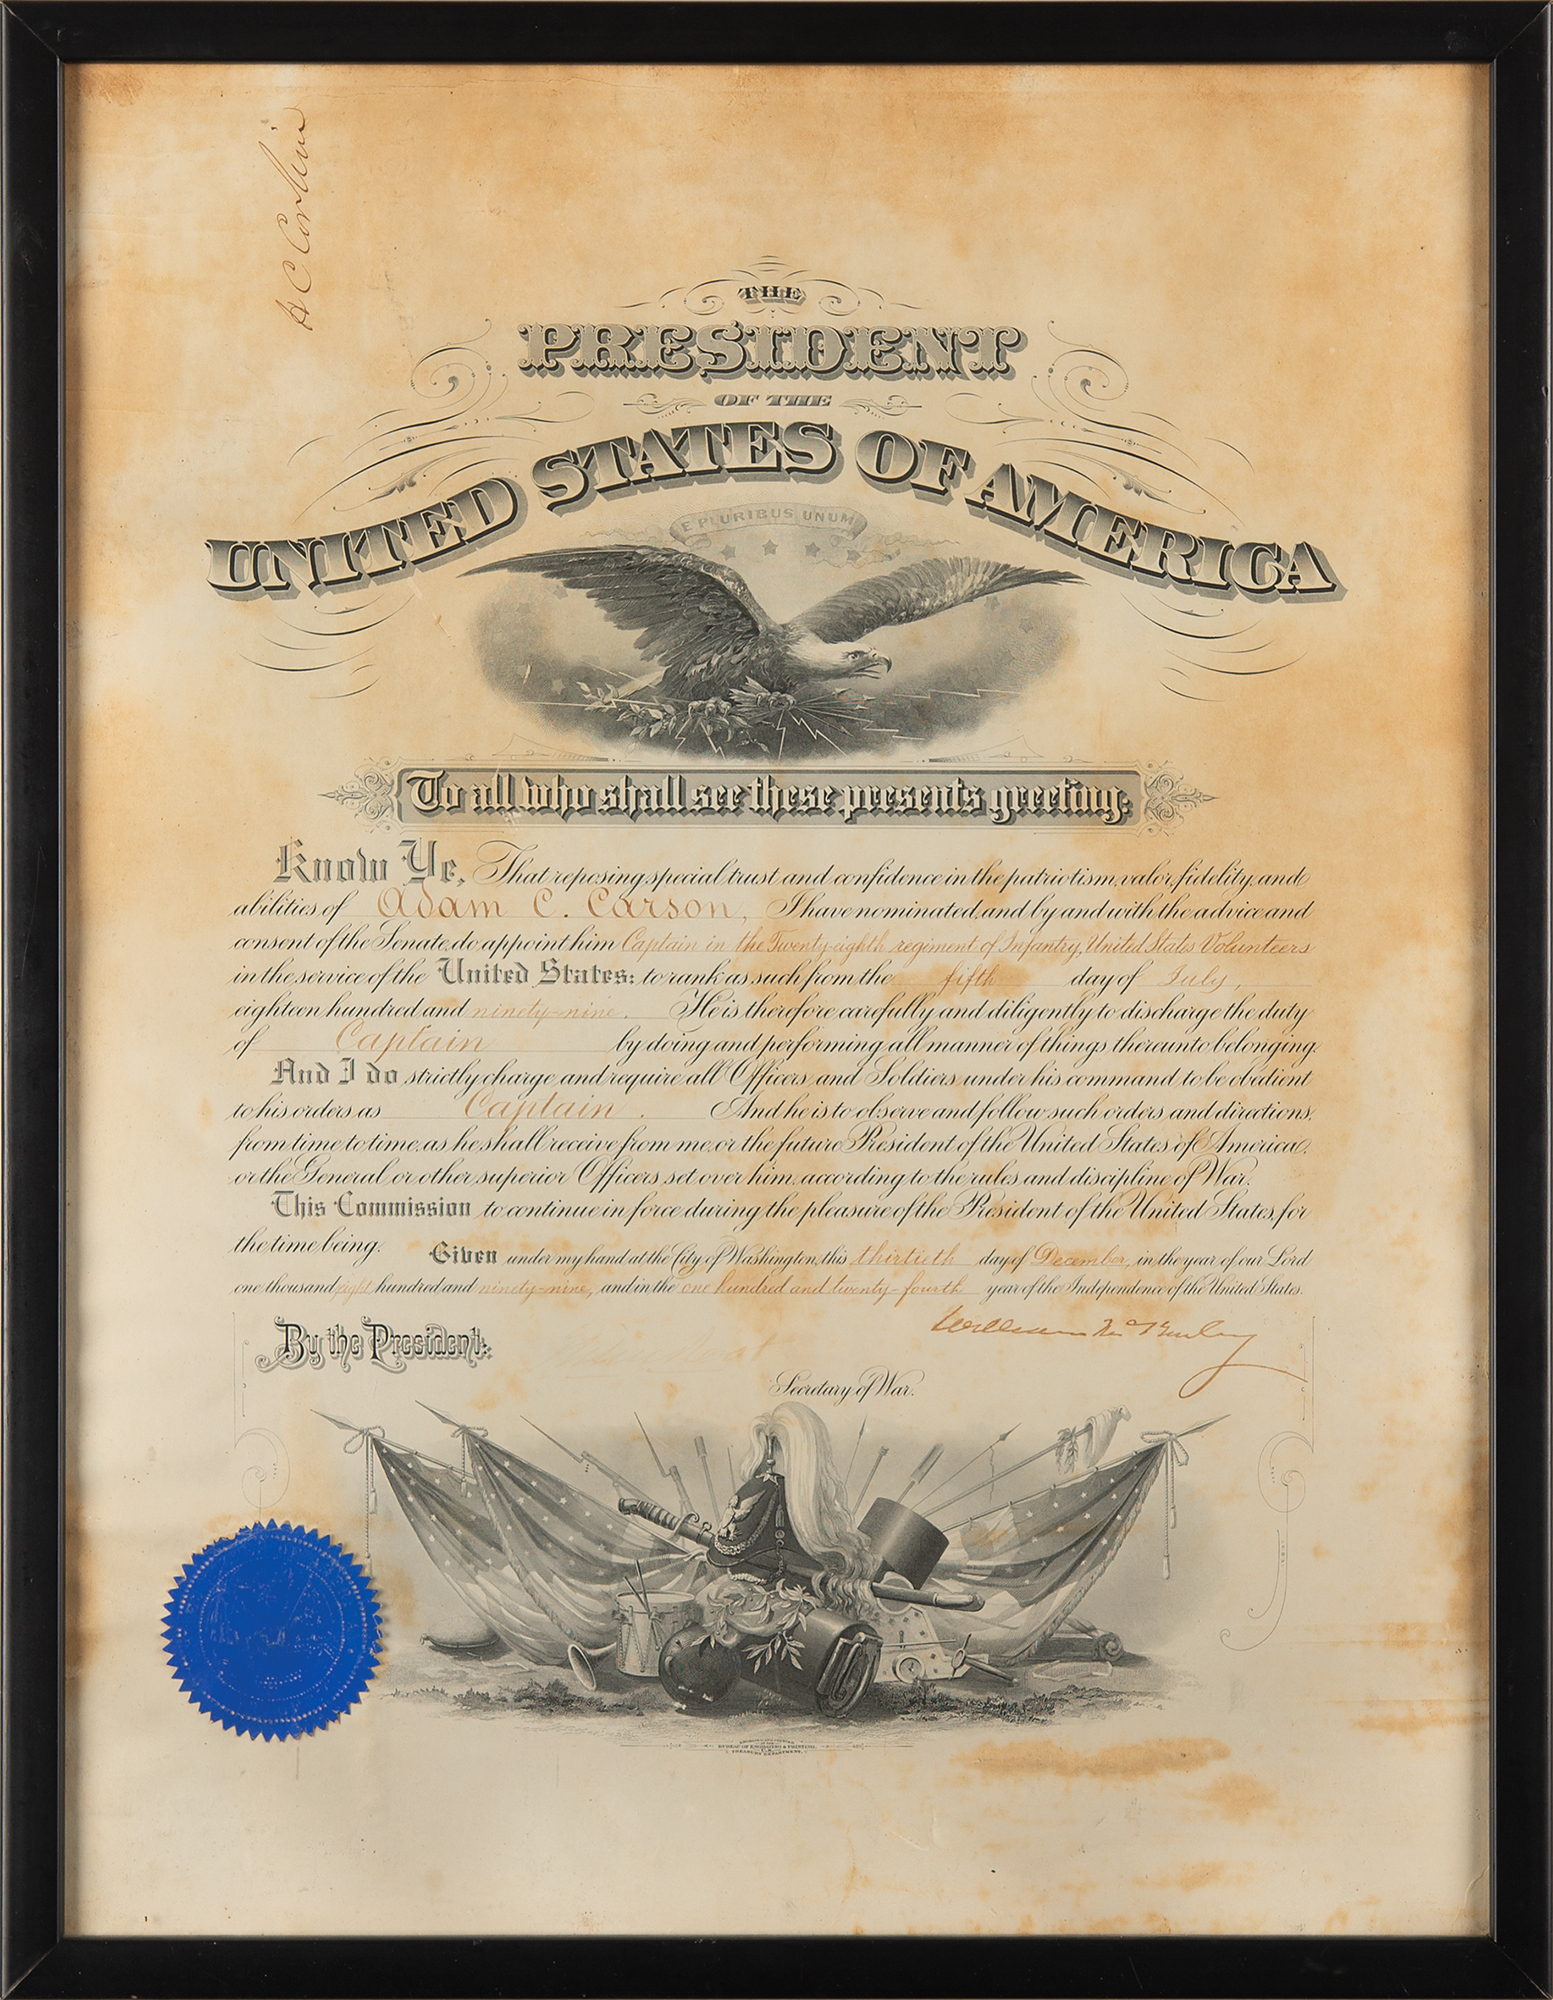 H C Corbin
THE
PRESIDENT
OF THE
UNITED STATES OF AMERICA
E PLURIBUS UNUM
To all who shall see these presents greeting:
Know Ye, That reposing special trust and confidence in the patriotism, valor, fidelity, and
abilities of Adam C. Carson, I have nominated, and by and with the advice and
consent of the Senate, do appoint him Captain in the Twenty-eighth regiment of Infantry, United States Volunteers
in the service of the United States: to rank as such from the fifth day of July,
eighteen hundred and ninety-nine. He is therefore carefully and diligently to discharge the duty
of Captain by doing and performing all manner of things thereunto belonging.
And I do strictly charge and require all Officers and Soldiers under his command to be obedient
to his orders as Captain. And he is to observe and follow such orders and directions,
from time to time, as he shall receive from me, or the future President of the United States of America,
or the General or other superior Officers set over him, according to the rules and discipline of War.
This Commission to continue in force during the pleasure of the President of the United States, for
the time being. Given under my hand at the City of Washington, this thirtieth day of December, in the year of our Lord
one thousand eight hundred and ninety-nine, and in the one hundred and twenty-fourth year of the Independence of the United States.
William McKinley
By the President:
Secretary of War.
BUREAU OF ENGRAVING & PRINTING.
TREASURY DEPARTMENT.